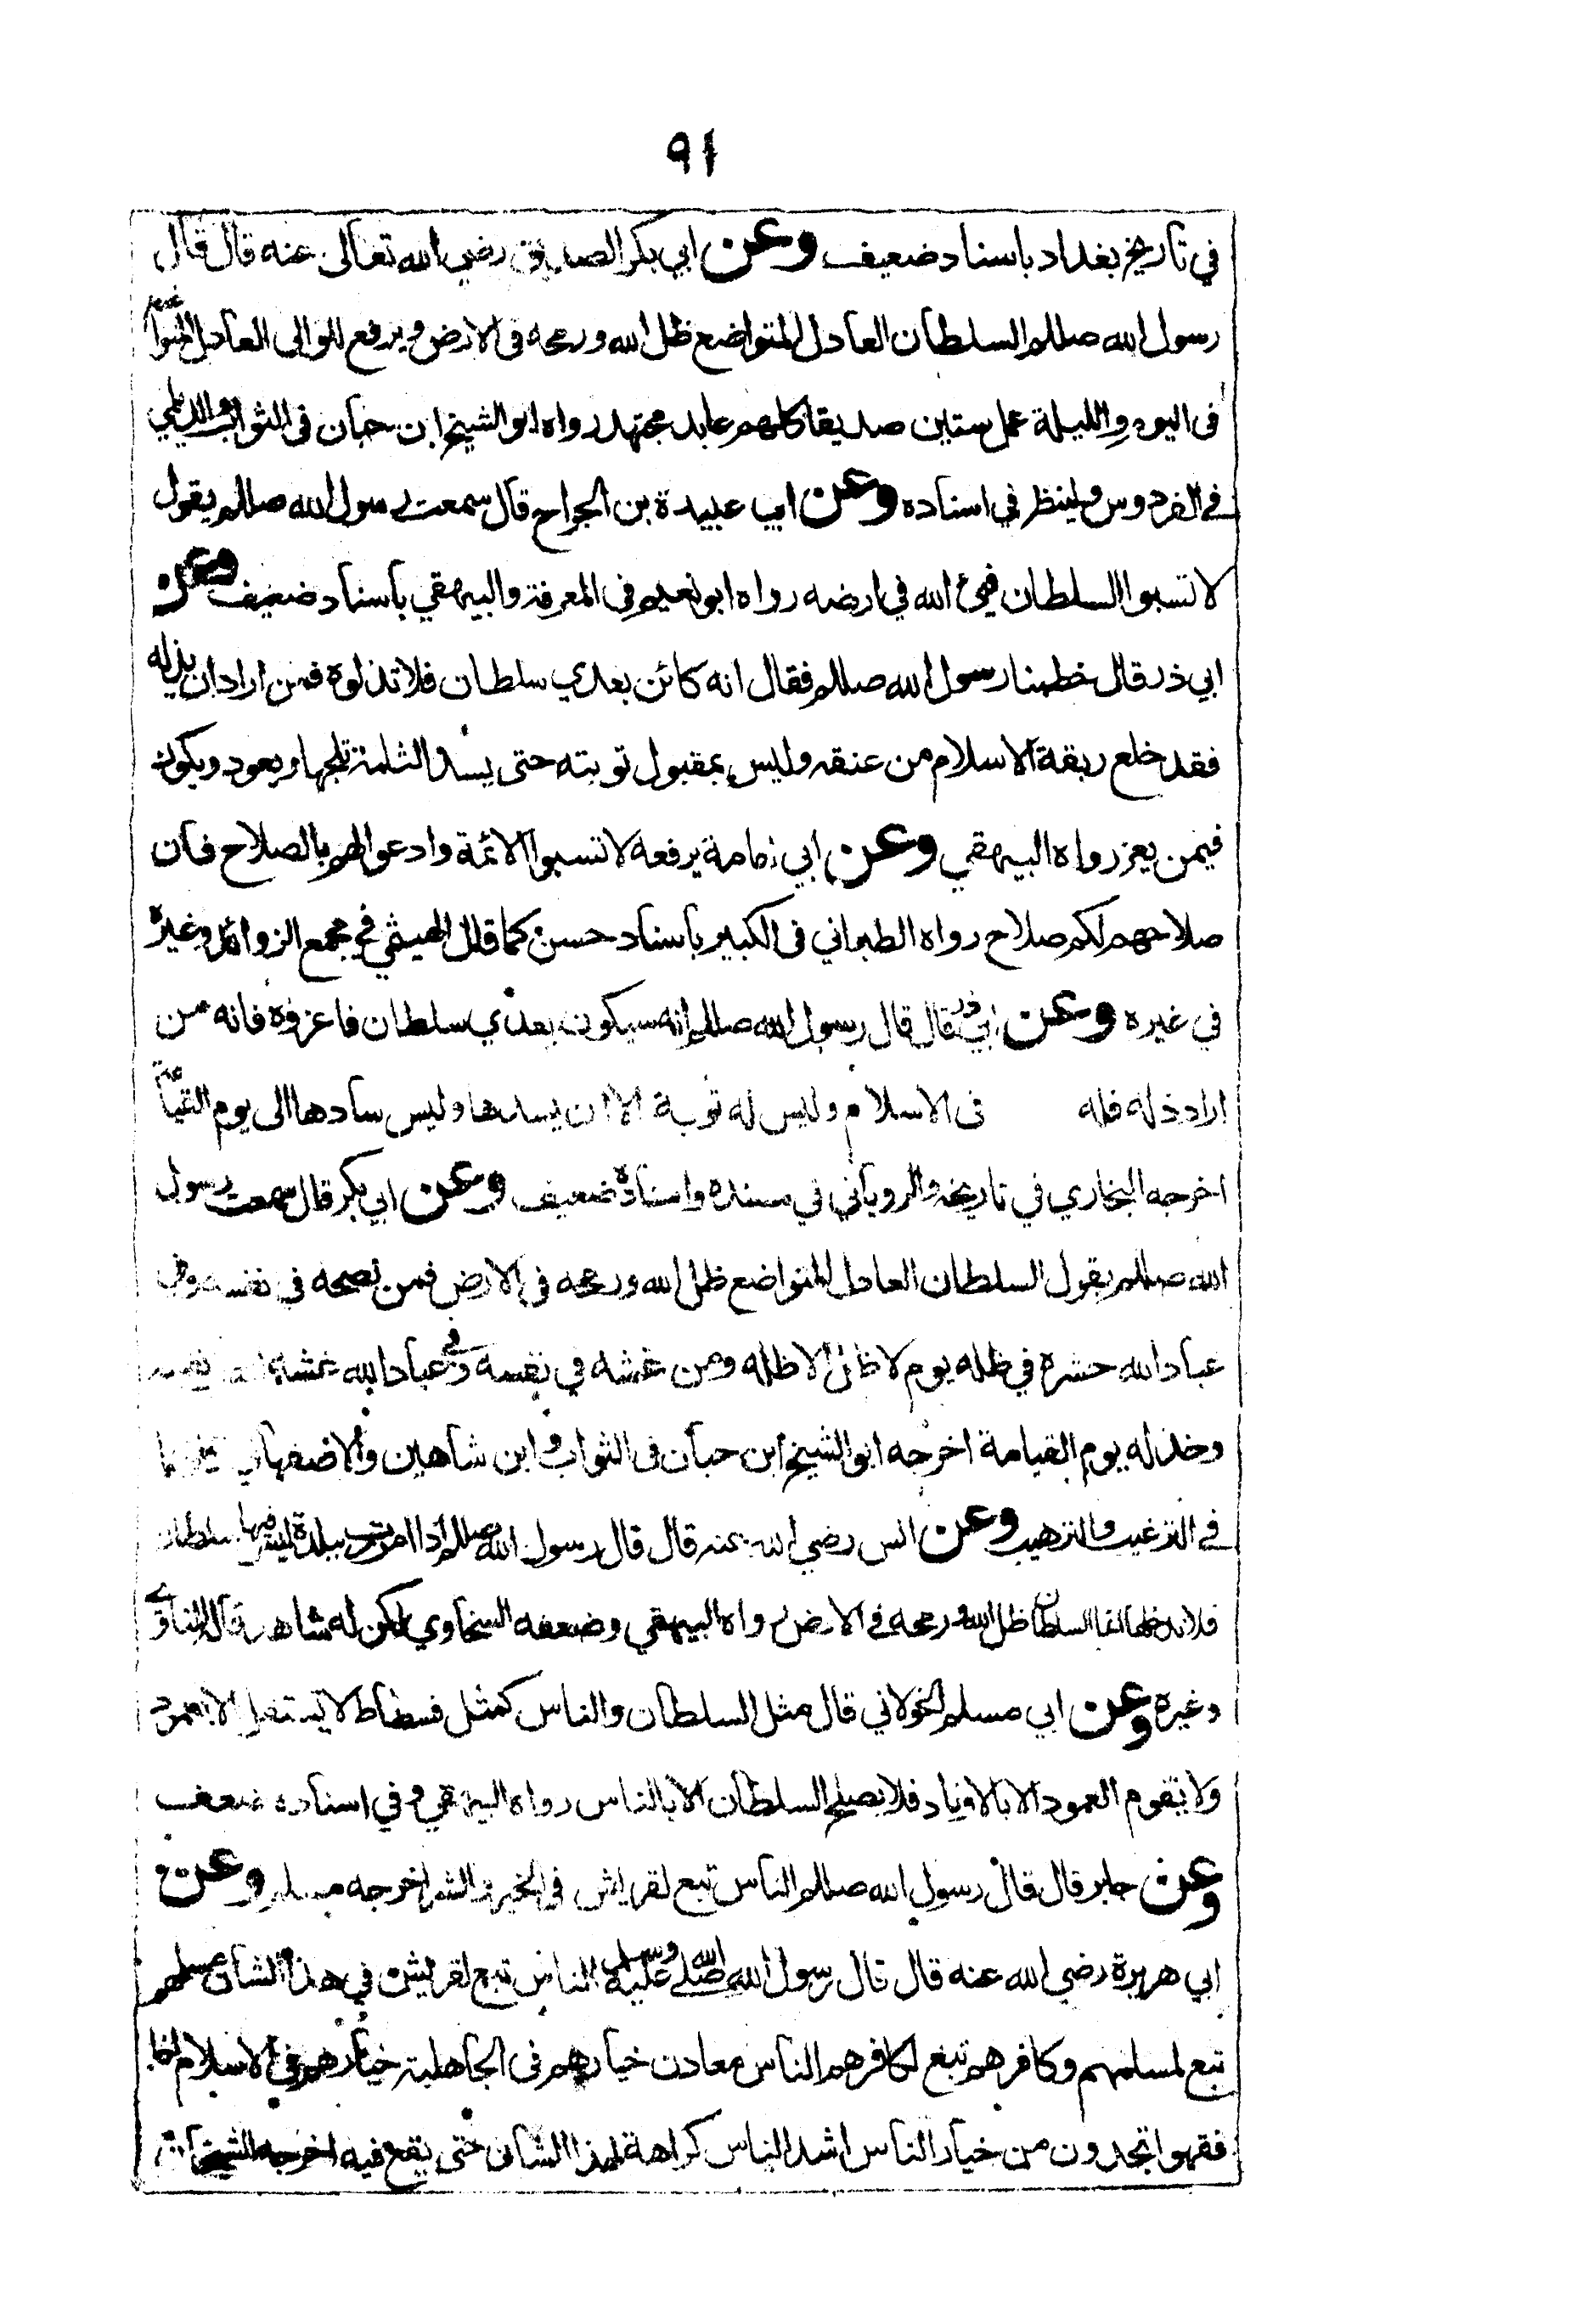 ٩١
في تاريخ بغداد باسناد ضعيف وعن ابي بكر الصديق رضي الله تعالى عنه قال قال
رسول الله صللم السلطان العادل المتواضع ظل الله ورمحه فى الارض ويرفع للوالى العادل المتواضع
فى اليوم والليلة عمل ستين صديقا كلهم عابد مجتهد رواه ابو الشيخ ابن حبان فى الثواب والديلمي
في الفردوس ولينظر في اسناده وعن ابي عبيدة بن الجراح قال سمعت رسول الله صللم يقول
لا تسبوا السلطان فيئ الله في ارضه رواه ابو نعيم في المعرفة والبيهقي باسناد ضعيف وعن
ابي ذر قال خطبنا رسول الله صللم فقال انه كائن بعدي سلطان فلا تذلوه فمن اراد ان يذله
فقد خلع ربقة الاسلام من عنقه وليس بمقبول توبته حتى يسد الثلمة ويعود ويكون
فيمن يعز رواه البيهقي وعن ابي امامة يرفعه لا تسبوا الائمة وادعوا لهم بالصلاح فان
صلاحهم لكم صلاح رواه الطبراني فى الكبير باسناد حسن كما قال الهيثمي في مجمع الزوائد وغيره
في غيره وعن ابي ذر قال قال رسول الله صللم انه سيكون بعدي سلطان فاعزوه فانه من
اراد ذله فله فى الاسلام وليس له توبة الا ان يسدها وليس سادها الى يوم القيامة
اخرجه البخاري في تاريخه والروياني في مسنده واسناده ضعيف وعن ابي بكر قال سمعت رسول
الله صللم يقول السلطان العادل المتواضع ظل الله ورمحه فى الارض فمن نصحه في نفسه وفي
عباد الله حشره في ظله يوم لا ظل الا ظله ومن غشه في نفسه وفي عباد الله غشه
وخذله يوم القيامة اخرجه ابو الشيخ ابن حبان فى الثواب وابن شاهين والاصفهاني
في الترغيب والترهيب وعن انس رضي الله عنه قال قال رسول الله صللم اذا مررت ببلدة ليس فيها سلطان
فلا تدخلها انما السلطان ظل الله ورمحه في الارض رواه البيهقي وضعفه السخاوي لكن له شاهد قال المناوي
وغيره وعن ابي مسلم الخولاني قال مثل السلطان والناس كمثل فسطاط لا يستقل الا بعمود
ولا يقوم العمود الا بالاوتاد فلا يصلح السلطان الا بالناس رواه البيهقي وفي اسناده ضعف
وعن جابر قال قال رسول الله صللم الناس تبع لقريش فى الخير والشر اخرجه مسلم وعن
ابي هريرة رضي الله عنه قال قال رسول الله صلى الله عليه وسلم الناس تبع لقريش في هذا الشان مسلمهم
تبع لمسلمهم وكافرهم تبع لكافرهم الناس معادن خيارهم فى الجاهلية خيارهم في الاسلام اذا
فقهوا تجدون من خيار الناس اشد الناس كراهة لهذا الشان حتى يقع فيه اخرجه الشيخان